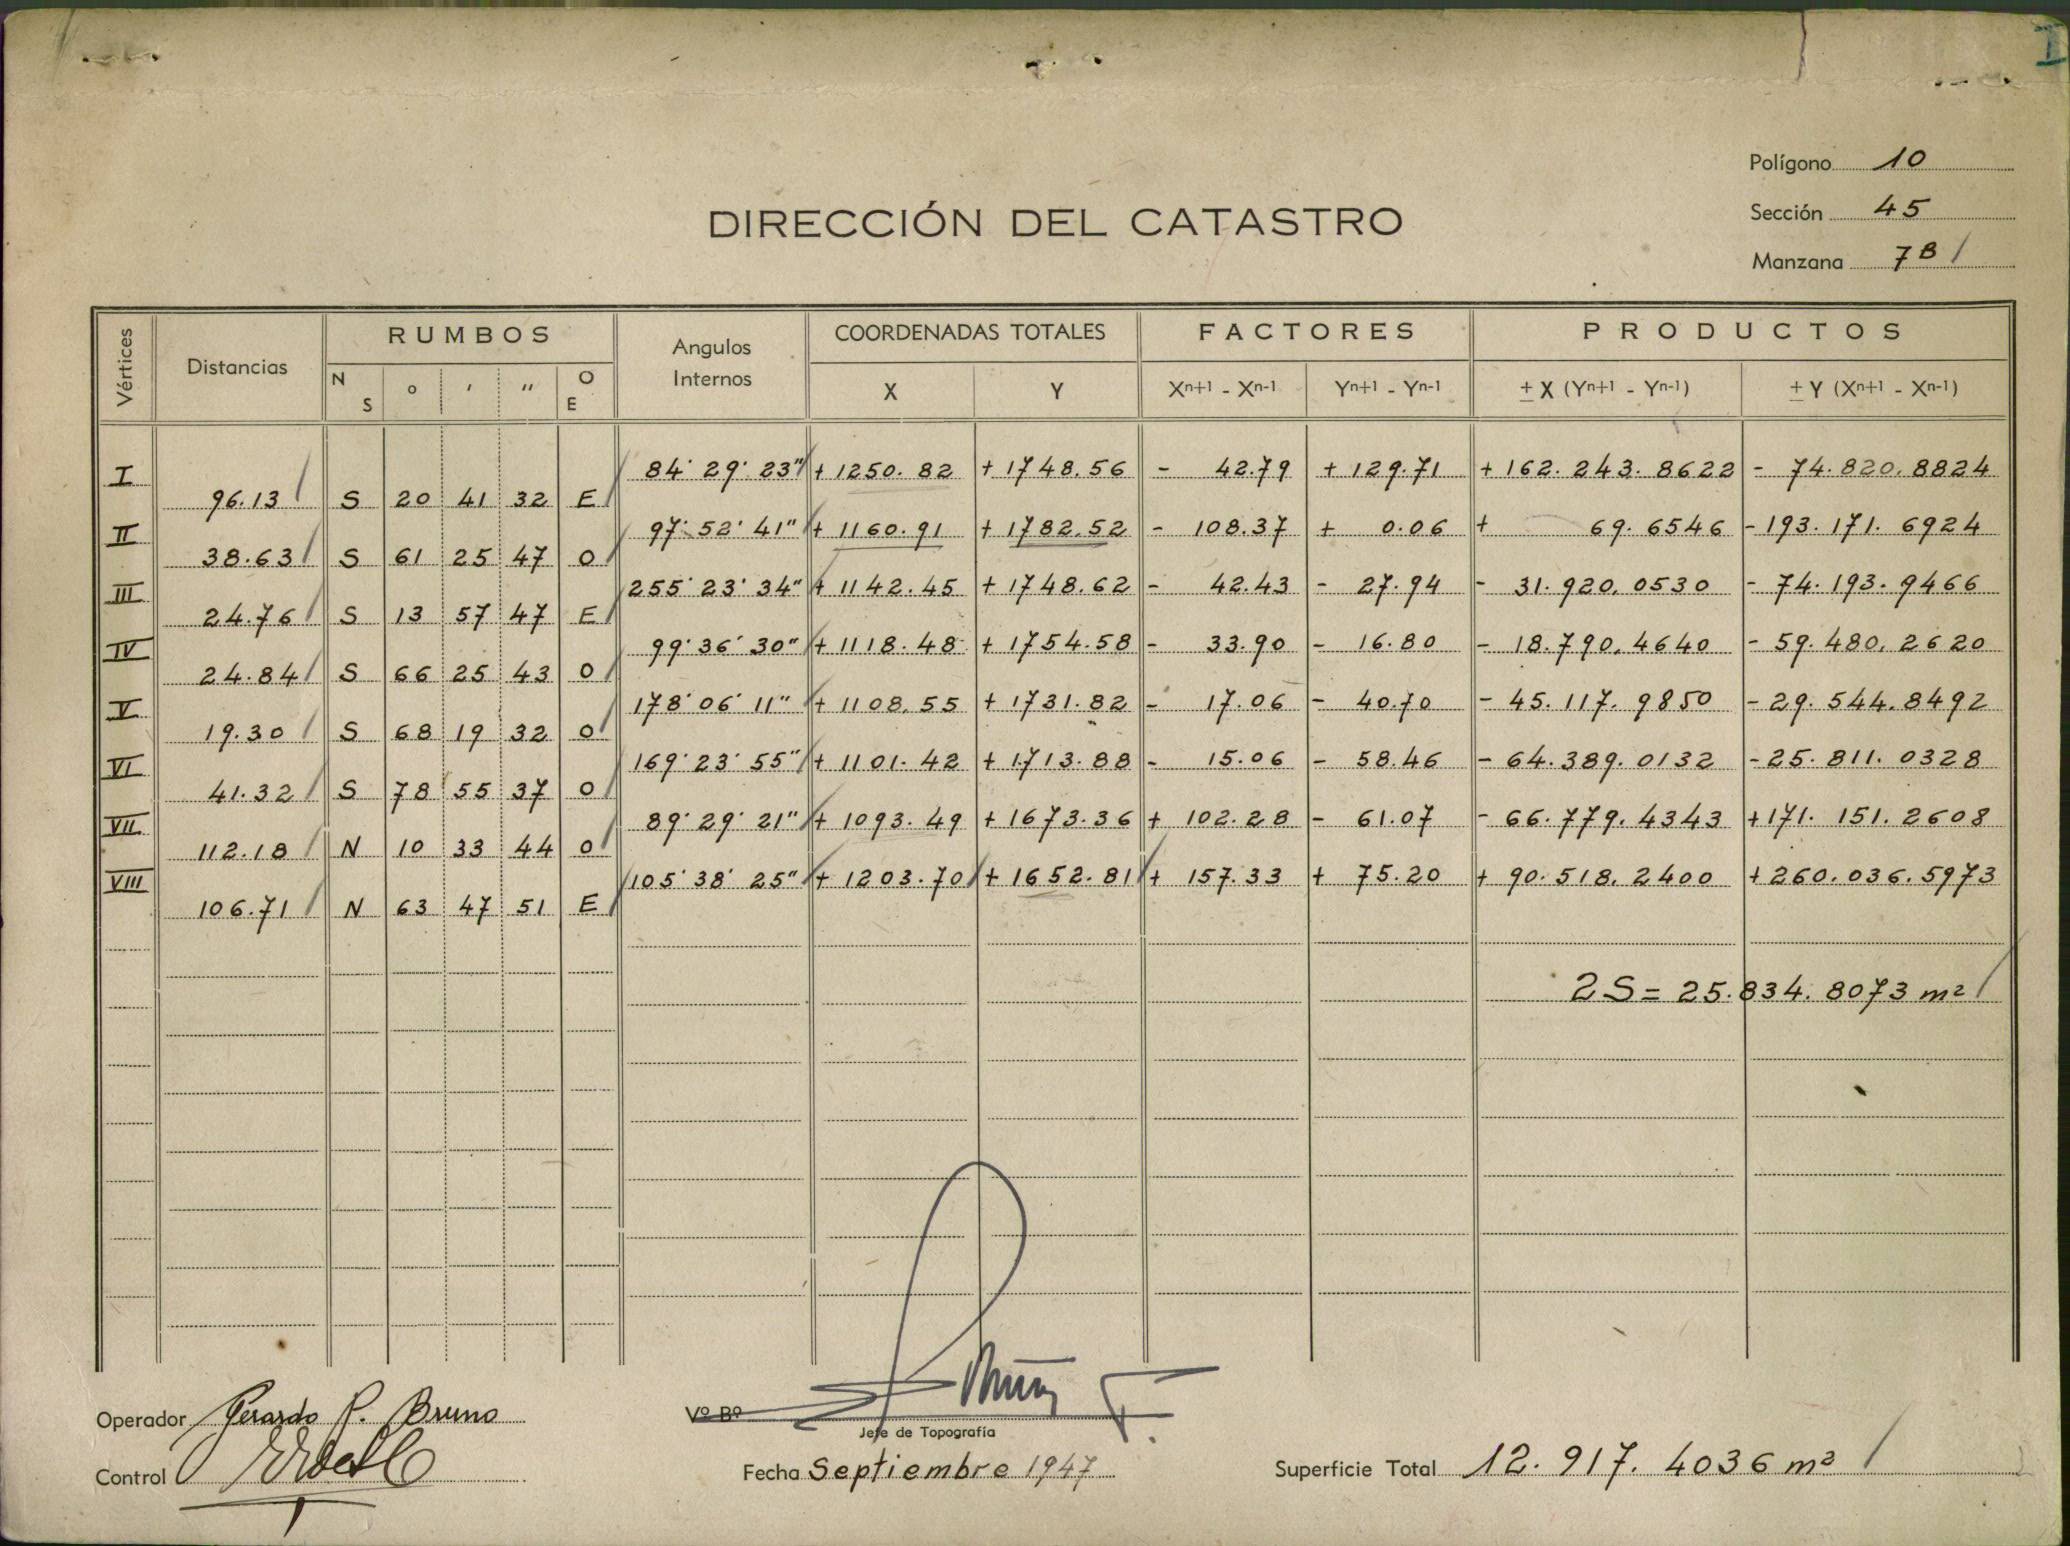 I
Polígono 10
Sección 45
Manzana 7B
DIRECCIÓN DEL CATASTRO
Vértices Distancias RUMBOS Angulos Internos COORDENADAS TOTALES FACTORES PRODUCTOS
N S ° ' " O E X Y Xn+1 - Xn-1 Yn+1 - Yn-1 ± X (Yn+1 - Yn-1) ± Y (Xn+1 - Xn-1)
I 84° 29' 23" + 1250.82 + 1748.56 - 42.79 + 129.71 + 162.243.8622 - 74.820.8824
96.13 S 20 41 32 E
II 97° 52' 41" + 1160.91 + 1782.52 - 108.37 + 0.06 + 69.6546 - 193.171.6924
38.63 S 61 25 47 O
III 255° 23' 34" + 1142.45 + 1748.62 - 42.43 - 27.94 - 31.920.0530 - 74.193.9466
24.76 S 13 57 47 E
IV 99° 36' 30" + 1118.48 + 1754.58 - 33.90 - 16.80 - 18.790.4640 - 59.480.2620
24.84 S 66 25 43 O
V 178° 06' 11" + 1108.55 + 1731.82 - 17.06 - 40.70 - 45.117.9850 - 29.544.8492
19.30 S 68 19 32 O
VI 169° 23' 55" + 1101.42 + 1713.88 - 15.06 - 58.46 - 64.389.0132 - 25.811.0328
41.32 S 78 55 37 O
VII 89° 29' 21" + 1093.49 + 1673.36 + 102.28 - 61.07 - 66.779.4343 + 171.151.2608
112.18 N 10 33 44 O
VIII 105° 38' 25" + 1203.70 + 1652.81 + 157.33 + 75.20 + 90.518.2400 + 260.036.5973
106.71 N 63 47 51 E
2S = 25.834.8073 m²
Operador Gerardo P. Bruno
Vº Bº
Jefe de Topografía
Control
Fecha Septiembre 1947
Superficie Total 12.917.4036 m²